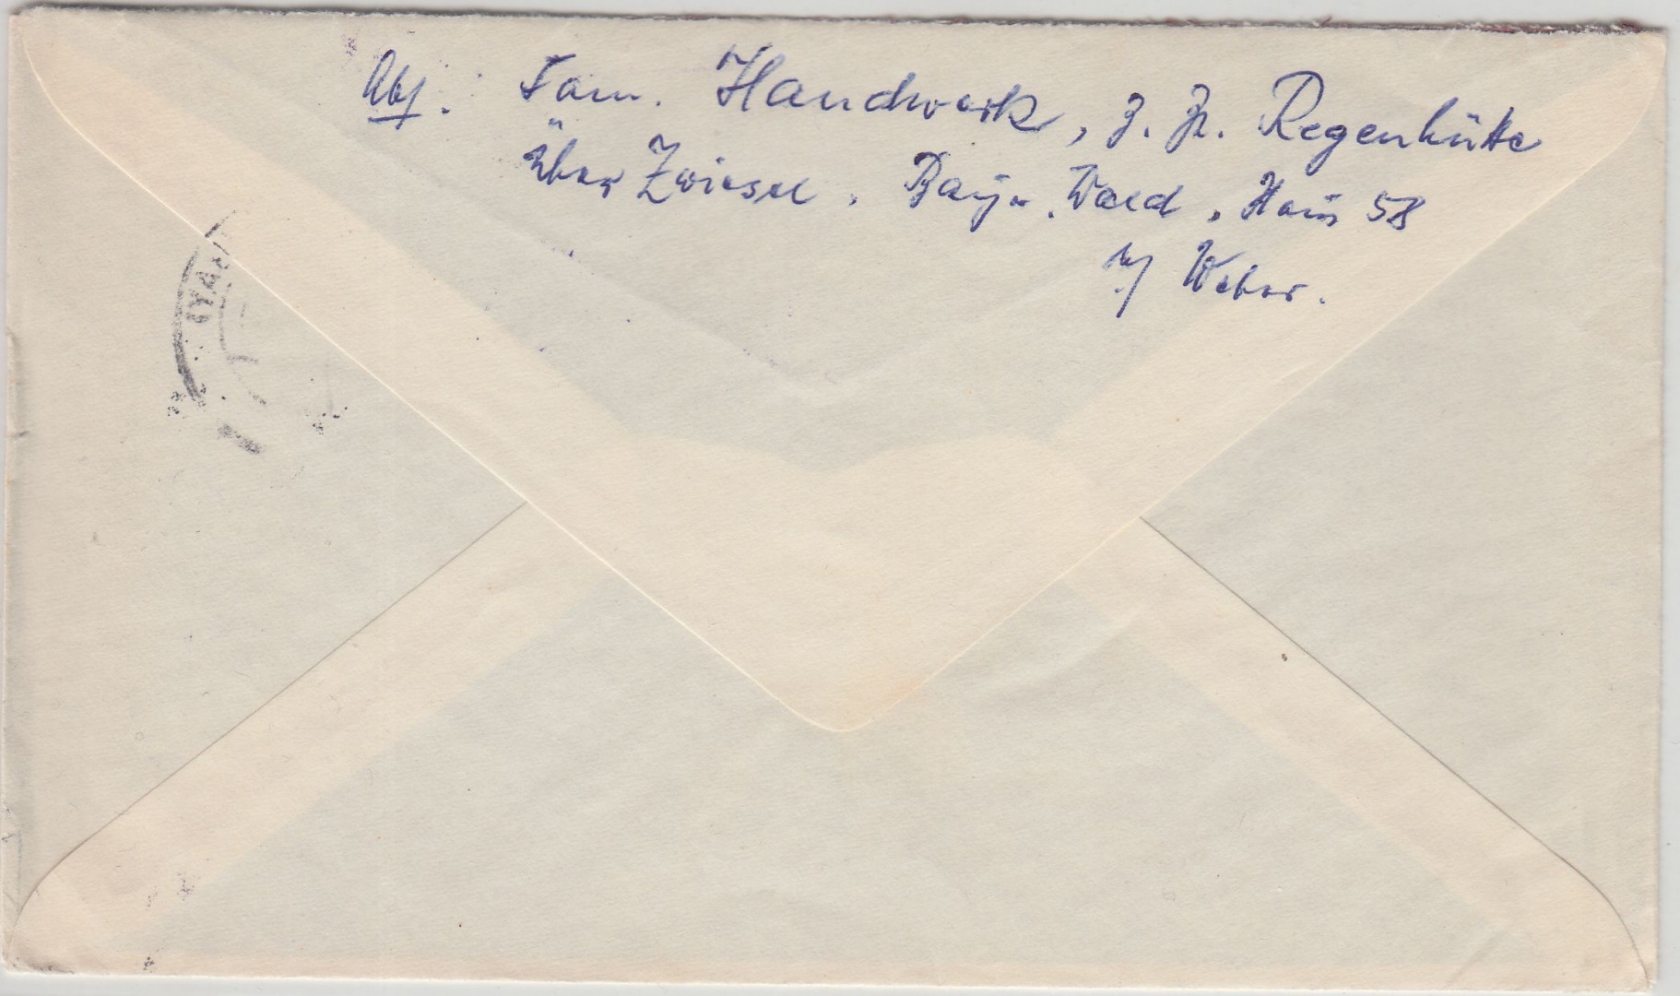 Abs. Fam. Handwerk, z. Zt. Regenhütte
über Zwiesel, Bayr. Wald, Haus 58
b/ Weber.